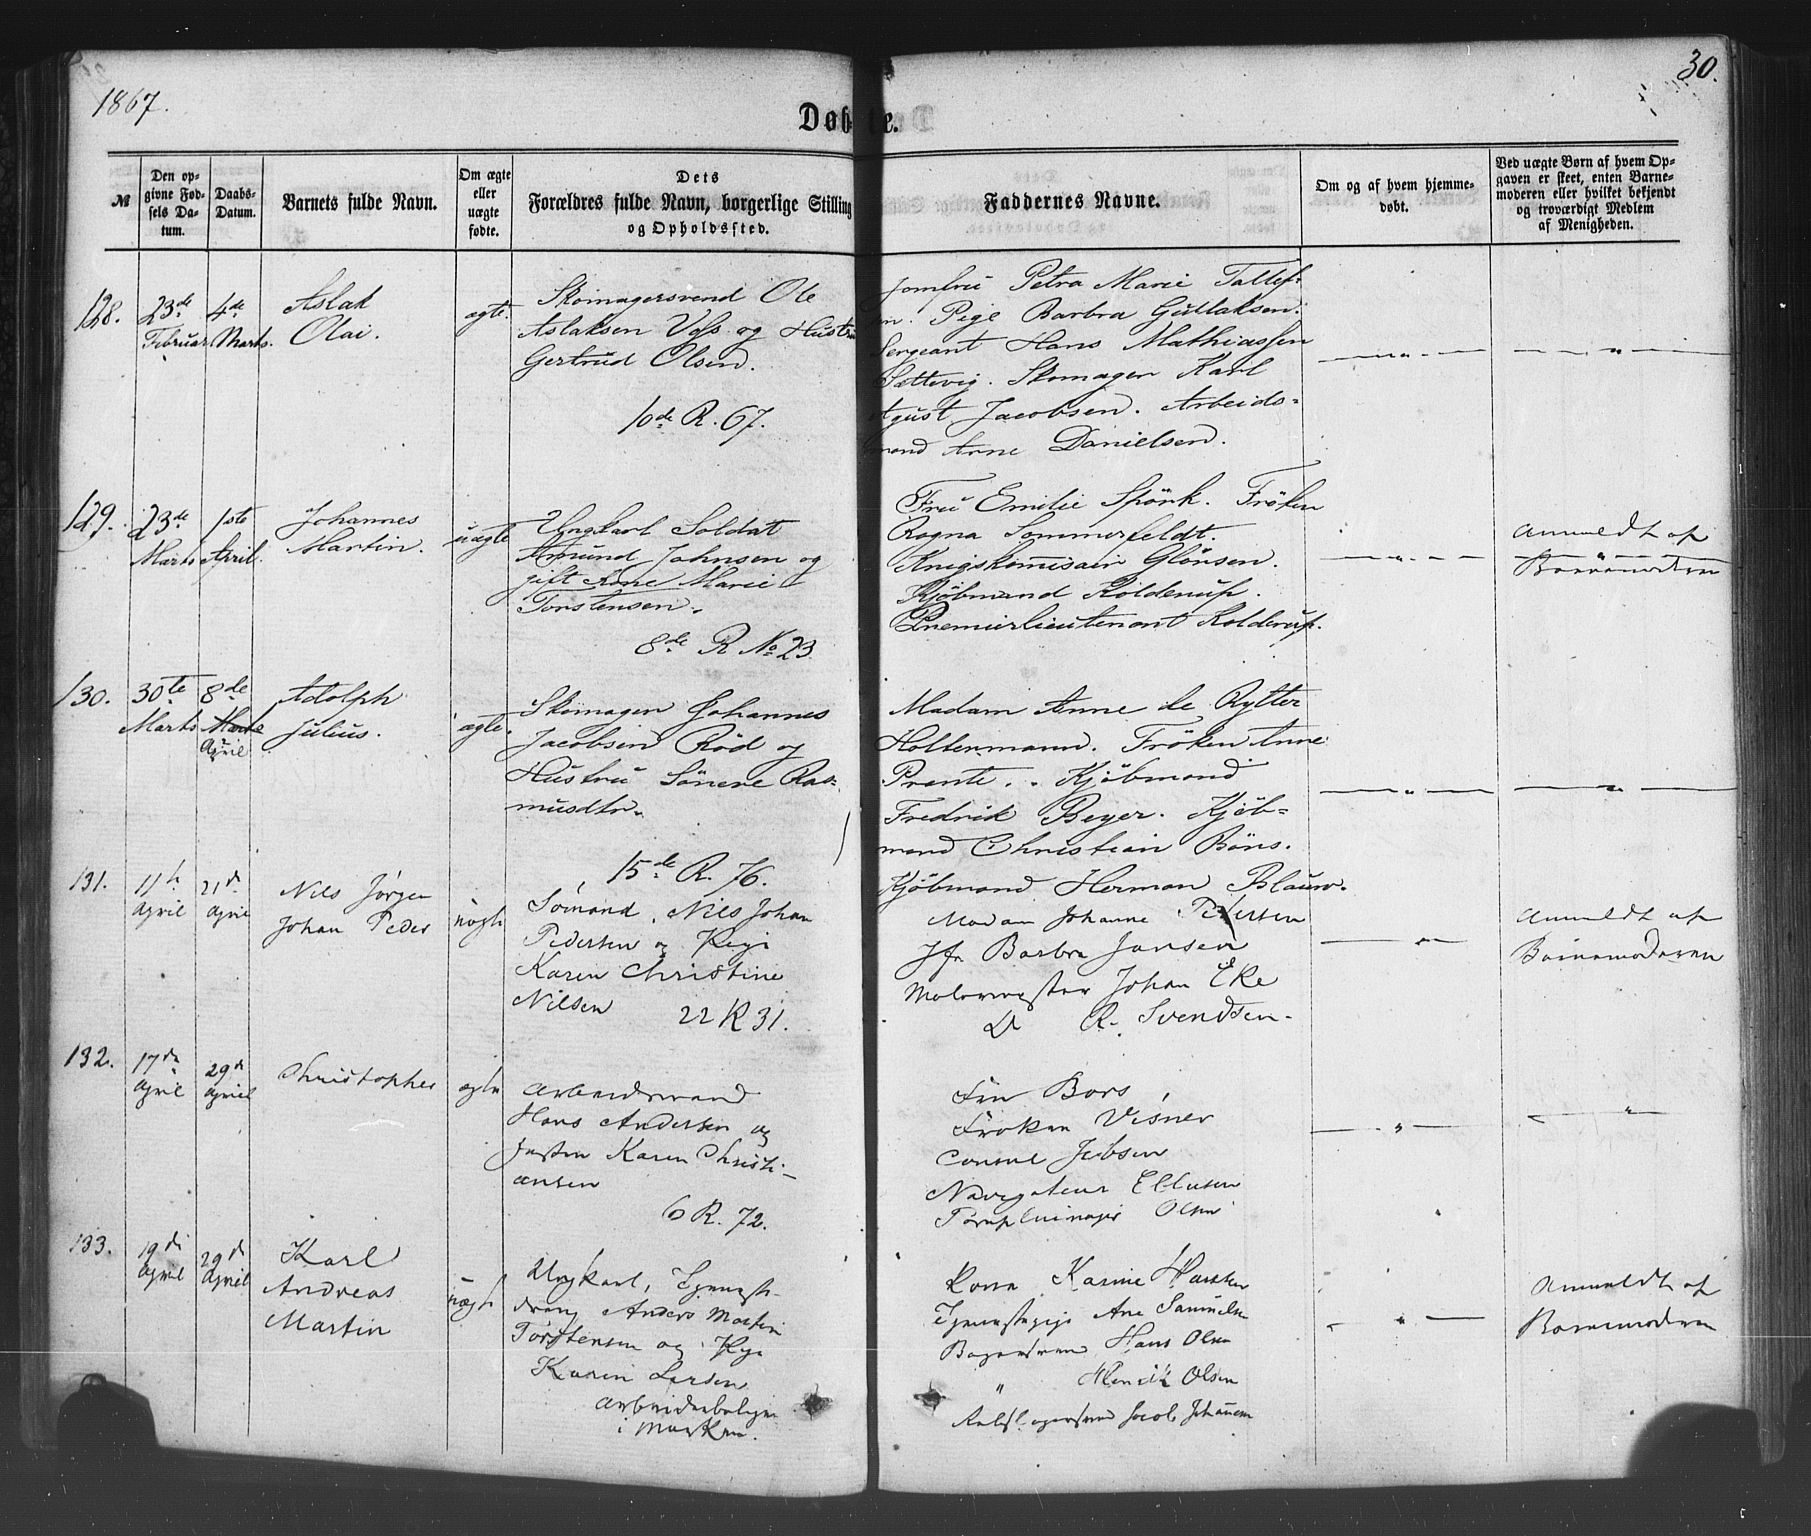 1867.
30.
Døbte.
№
Den opgivne Fødsels Datum.
Daabs-Datum.
Barnets fulde Navn.
Om ægte eller uægte fødte.
Dets Forældres fulde Navn, borgerlige Stilling og Opholdssted.
Faddernes Navne.
Om og af hvem hjemmedøbt.
Ved uægte Børn af hvem Opgaven er skeet, enten Barnemoderen eller hvilket bekjendt og troværdigt Medlem af Menigheden.
128.
23de Februar
4de Marts.
Aslak
Olai.
ægte.
Skomagersvend Ole
Aslaksen Voss og Hustru
Gertrud Olsen.
10de R. 67.
Jomfru Petra Marie
Pige Barbra Gudlaksen.
Sergeant Hans Mathiassen
Sættevig. Skomager Karl
Agust Jacobsen. Arbeids=
mand Arne Danielsen.
129.
23de Marts
1ste April.
Johannes
Martin.
uægte
Ungkarl Soldat
Amund Johnsen og
gift Ane Marie
Torstensen.
8de R No 23
Fru Emilie Spörk. Fröken
Ragna Sommerfeldt.
Krigskomisair Glörsen.
Kjöbmand Kolderup.
Premierlieutenant Kolderup.
Anmeldt af
Barnemoderen
130.
30te Marts
8de Marts April
Adolph
Julius.
ægte.
Skomager Johannes
Jacobsen Röd og
Hustru Söneve Ras=
musdtr.
15de R. 76.
Madam Anne de Rytter
Holtermann. Fröken Anne
Prante. Kjöbmand
Fredrik Beyer. Kjöb=
mand Christian Böns.
Kjöbmand Herman Blauw.
131.
11te April
21de April
Nils Jørgen
Johan Peder
uægte
Sømand, Nils Johan
Pedersen og Pige
Karen Christine
Nilsen 22 R 31.
Madam Johanne Petersen
Jfr Barbra Jansen
Malermester Johan Eke
D R. Svendsen.
Anmeldt af
Barnemoderen
132.
17de April
29de April
Christopher
ægte
Arbeidsmand
Hans Andersen og
Hustru Karen Christi-
ansen
6 R. 72.
Fru Bors,
Frøken Visner
Consul Jebsen
Navigateur Ellusen
Olsen
133.
19de April
29de April
Karl
Andreas
Martin
uægte
Ungkarl, Tjeneste-
dreng Anders Martin
Torstensen og Pige
Karen Larsen
Arbeiderboligen
i Marken.
Kone Karine Hansen
Tjenestepige Ane Samuelsen
Bagersvend Hans Olsen
" Henrik Olsen
Jacob Johannesen
Anmeldt af
Barnemoderen